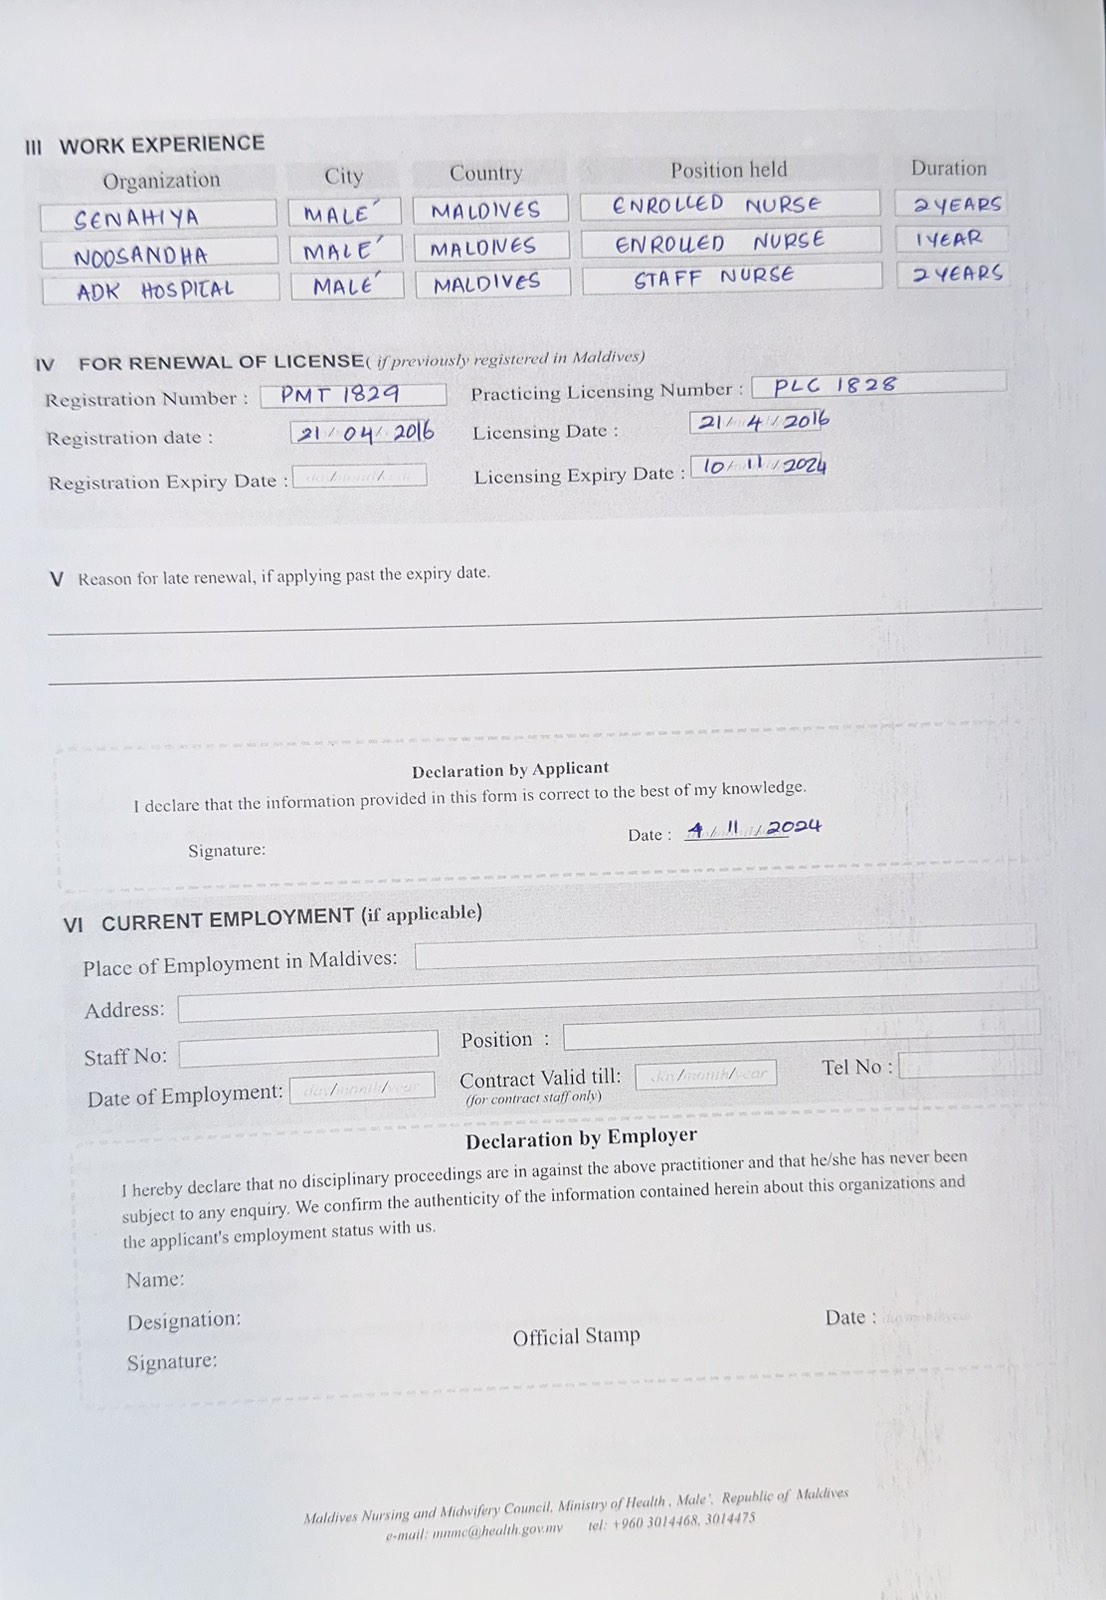 III WORK EXPERIENCE
Organization City Country Position held Duration
SENAHIYA MALE' MALDIVES ENROLLED NURSE 2 YEARS
NOOSANDHA MALE' MALDIVES ENROLLED NURSE 1 YEAR
ADK HOSPITAL MALE' MALDIVES STAFF NURSE 2 YEARS
IV FOR RENEWAL OF LICENSE( if previously registered in Maldives)
Registration Number : PMT 1829 Practicing Licensing Number : PLC 1828
Registration date : 21/04/2016 Licensing Date : 21/4/2016
Registration Expiry Date : Licensing Expiry Date : 10/11/2024
V Reason for late renewal, if applying past the expiry date.
Declaration by Applicant
I declare that the information provided in this form is correct to the best of my knowledge.
Signature: Date : 4/11/2024
VI CURRENT EMPLOYMENT (if applicable)
Place of Employment in Maldives:
Address:
Staff No: Position :
Date of Employment: day/month/year Contract Valid till: day/month/year Tel No :
(for contract staff only)
Declaration by Employer
I hereby declare that no disciplinary proceedings are in against the above practitioner and that he/she has never been
subject to any enquiry. We confirm the authenticity of the information contained herein about this organizations and
the applicant's employment status with us.
Name:
Designation: Date :
Official Stamp
Signature:
Maldives Nursing and Midwifery Council, Ministry of Health , Male', Republic of Maldives
e-mail: mnmc@health.gov.mv tel: +960 3014468, 3014475